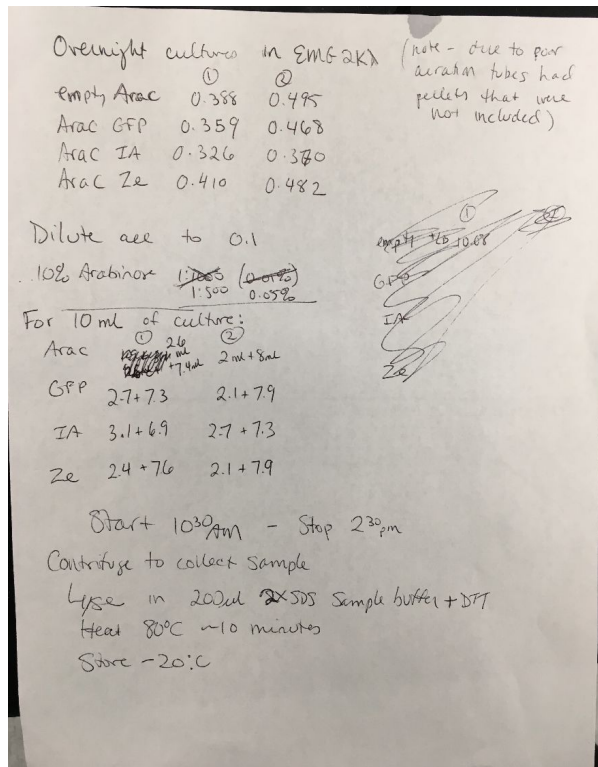 Overnight cultures in EMG2Kλ
(note - due to poor
aeration tubes had
pellets that were
not included)
① ②
empty Arac 0.388 0.495
Arac GFP 0.359 0.468
Arac IA 0.326 0.370
Arac Ze 0.410 0.482
Dilute all to 0.1
10% Arabinose 1:1000 (0.01%)
1:500 0.05%
①
empty
GFP
IA
Ze
For 10 ml of culture:
① ②
Arac 2.6 ml + 7.4ml 2 ml + 8 ml
GFP 2.7 + 7.3 2.1 + 7.9
IA 3.1 + 6.9 2.7 + 7.3
Ze 2.4 + 7.6 2.1 + 7.9
Start 10 30 AM - Stop 2 30 pm
Centrifuge to collect sample
Lyse in 200ul 2X SDS Sample buffer + DTT
Heat 80°C ~10 minutes
Store -20°C